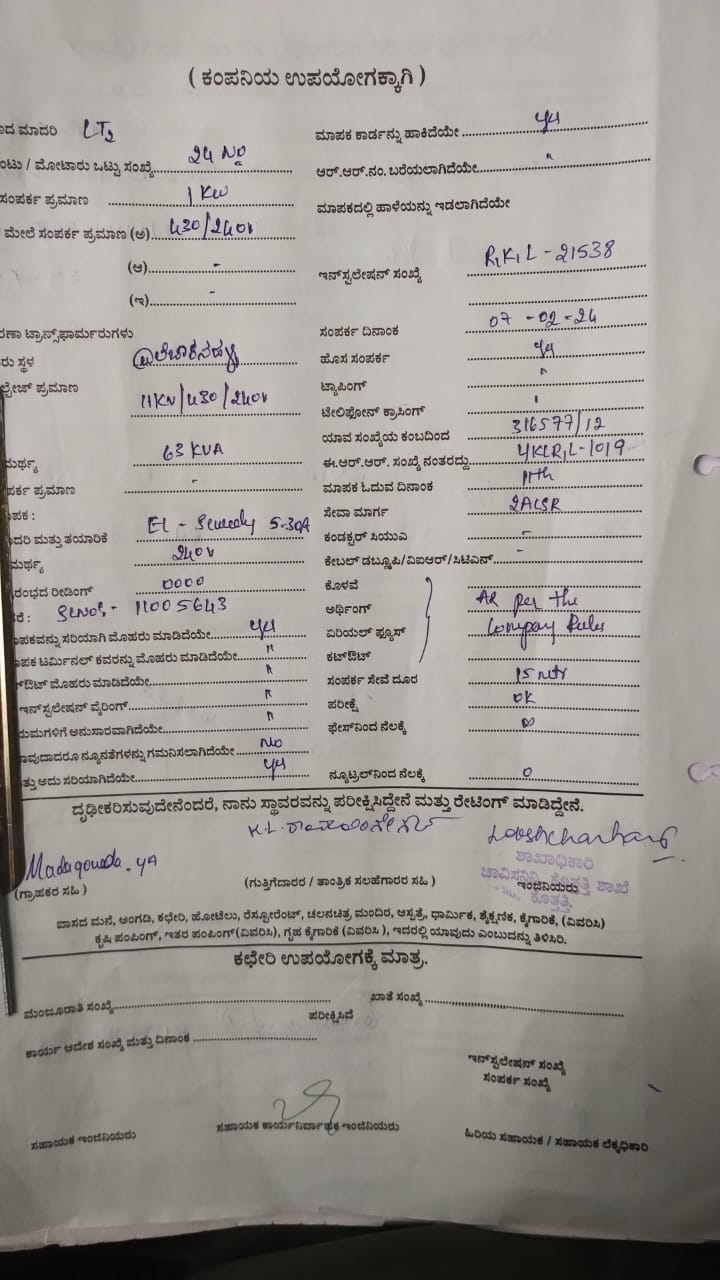 ( ಕಂಪನಿಯ ಉಪಯೋಗಕ್ಕಾಗಿ )
ಾದ ಮಾದರಿ LT2
ಂಟು / ಮೋಟಾರು ಒಟ್ಟು ಸಂಖ್ಯೆ 24 No
ಸಂಪರ್ಕ ಪ್ರಮಾಣ 1 KW
ಮೇಲೆ ಸಂಪರ್ಕ ಪ್ರಮಾಣ (ಅ) 430/240v
(ಆ) -
(ಇ) -
ರಣಾ ಟ್ರಾನ್ಸ್‌ಫಾರ್ಮರುಗಳು
ರು ಸ್ಥಳ
ಲ್ಟೇಜ್ ಪ್ರಮಾಣ 11KV/430/240v
ಮರ್ಥ್ಯ 63 KVA
ಪರ್ಕ ಪ್ರಮಾಣ -
ಾಪಕ :
ದರಿ ಮತ್ತು ತಯಾರಿಕೆ EL - 5-30A
ಮರ್ಥ್ಯ 240v
ರಂಭದ ರೀಡಿಂಗ್ 0000
ರೆ : SLNo:- 11005643
ಾಪಕವನ್ನು ಸರಿಯಾಗಿ ಮೊಹರು ಮಾಡಿದೆಯೇ yes
ಾಪಕ ಟರ್ಮಿನಲ್ ಕವರನ್ನು ಮೊಹರು ಮಾಡಿದೆಯೇ "
್‌ಔಟ್ ಮೊಹರು ಮಾಡಿದೆಯೇ "
ಇನ್‌ಸ್ಟಲೇಷನ್ ವೈರಿಂಗ್ "
ಯಮಗಳಿಗೆ ಅನುಸಾರವಾಗಿದೆಯೇ "
ಾವುದಾದರೂ ನ್ಯೂನತೆಗಳನ್ನು ಗಮನಿಸಲಾಗಿದೆಯೇ No
ತ್ತು ಅದು ಸರಿಯಾಗಿದೆಯೇ yes
ಮಾಪಕ ಕಾರ್ಡನ್ನು ಹಾಕಿದೆಯೇ yes
ಆರ್.ಆರ್.ನಂ. ಬರೆಯಲಾಗಿದೆಯೇ "
ಮಾಪಕದಲ್ಲಿ ಹಾಳೆಯನ್ನು ಇಡಲಾಗಿದೆಯೇ
ಇನ್‌ಸ್ಟಲೇಷನ್ ಸಂಖ್ಯೆ R,K,L - 21538
ಸಂಪರ್ಕ ದಿನಾಂಕ 07 -02 -24
ಹೊಸ ಸಂಪರ್ಕ yes
ಟ್ಯಾಪಿಂಗ್ "
ಟೇಲಿಫೋನ್ ಕ್ರಾಸಿಂಗ್
ಯಾವ ಸಂಖ್ಯೆಯ ಕಂಬದಿಂದ 316577/12
ಈ.ಆರ್.ಆರ್. ಸಂಖ್ಯೆ ನಂತರದ್ದು 4KLR,L-1019
ಮಾಪಕ ಓದುವ ದಿನಾಂಕ 11th
ಸೇವಾ ಮಾರ್ಗ 2ACSR
ಕಂಡಕ್ಟರ್ ಸಿಯುಎ -
ಕೇಬಲ್ ಡಬ್ಲ್ಯೂಪಿ/ವಿಐಆರ್/ಸಿಟಿಎನ್ -
ಕೊಳವೆ
ಅರ್ಥಿಂಗ್ As per the
ಏರಿಯಲ್ ಫ್ಯೂಸ್ Company Rules
ಕಟ್‌ಔಟ್
ಸಂಪರ್ಕ ಸೇವೆ ದೂರ 15 mtr
ಪರೀಕ್ಷೆ OK
ಫೇಸ್‌ನಿಂದ ನೆಲಕ್ಕೆ ∞
ನ್ಯೂಟ್ರಲ್‌ನಿಂದ ನೆಲಕ್ಕೆ 0
ದೃಢೀಕರಿಸುವುದೇನೆಂದರೆ, ನಾನು ಸ್ಥಾವರವನ್ನು ಪರೀಕ್ಷಿಸಿದ್ದೇನೆ ಮತ್ತು ರೇಟಿಂಗ್ ಮಾಡಿದ್ದೇನೆ.
Madagouda. ya
(ಗ್ರಾಹಕರ ಸಹಿ )
(ಗುತ್ತಿಗೆದಾರರ / ತಾಂತ್ರಿಕ ಸಲಹೆಗಾರರ ಸಹಿ )
ಶಾಖಾಧಿಕಾರಿ
ಕೊತ್ತತ್ತಿ ಶಾಖೆ
ಕೊತ್ತತ್ತಿ.
ಇಂಜಿನಿಯರು
ವಾಸದ ಮನೆ, ಅಂಗಡಿ, ಕಛೇರಿ, ಹೋಟೆಲು, ರೆಸ್ಟೋರೆಂಟ್, ಚಲನಚಿತ್ರ ಮಂದಿರ, ಆಸ್ಪತ್ರೆ, ಧಾರ್ಮಿಕ, ಶೈಕ್ಷಣಿಕ, ಕೈಗಾರಿಕೆ, (ವಿವರಿಸಿ)
ಕೃಷಿ ಪಂಪಿಂಗ್, ಇತರ ಪಂಪಿಂಗ್(ವಿವರಿಸಿ), ಗೃಹ ಕೈಗಾರಿಕೆ (ವಿವರಿಸಿ ), ಇದರಲ್ಲಿ ಯಾವುದು ಎಂಬುದನ್ನು ತಿಳಿಸಿರಿ.
ಕಛೇರಿ ಉಪಯೋಗಕ್ಕೆ ಮಾತ್ರ.
ಮಂಜೂರಾತಿ ಸಂಖ್ಯೆ
ಖಾತೆ ಸಂಖ್ಯೆ
ಪರೀಕ್ಷಿಸಿದೆ
ಕಾರ್ಯ ಆದೇಶ ಸಂಖ್ಯೆ ಮತ್ತು ದಿನಾಂಕ
ಇನ್‌ಸ್ಟಲೇಷನ್ ಸಂಖ್ಯೆ
ಸಂಪರ್ಕ ಸಂಖ್ಯೆ
ಸಹಾಯಕ ಇಂಜಿನಿಯರು
ಸಹಾಯಕ ಕಾರ್ಯನಿರ್ವಾಹಕ ಇಂಜಿನಿಯರು
ಹಿರಿಯ ಸಹಾಯಕ / ಸಹಾಯಕ ಲೆಕ್ಕಾಧಿಕಾರಿ